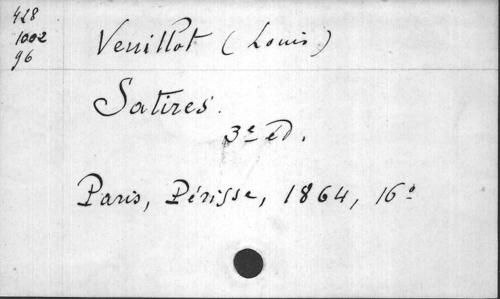 428
1002
96
Veuillot (Louis)
Satires.
3e éd.
Paris, Périsse, 1864, 16º